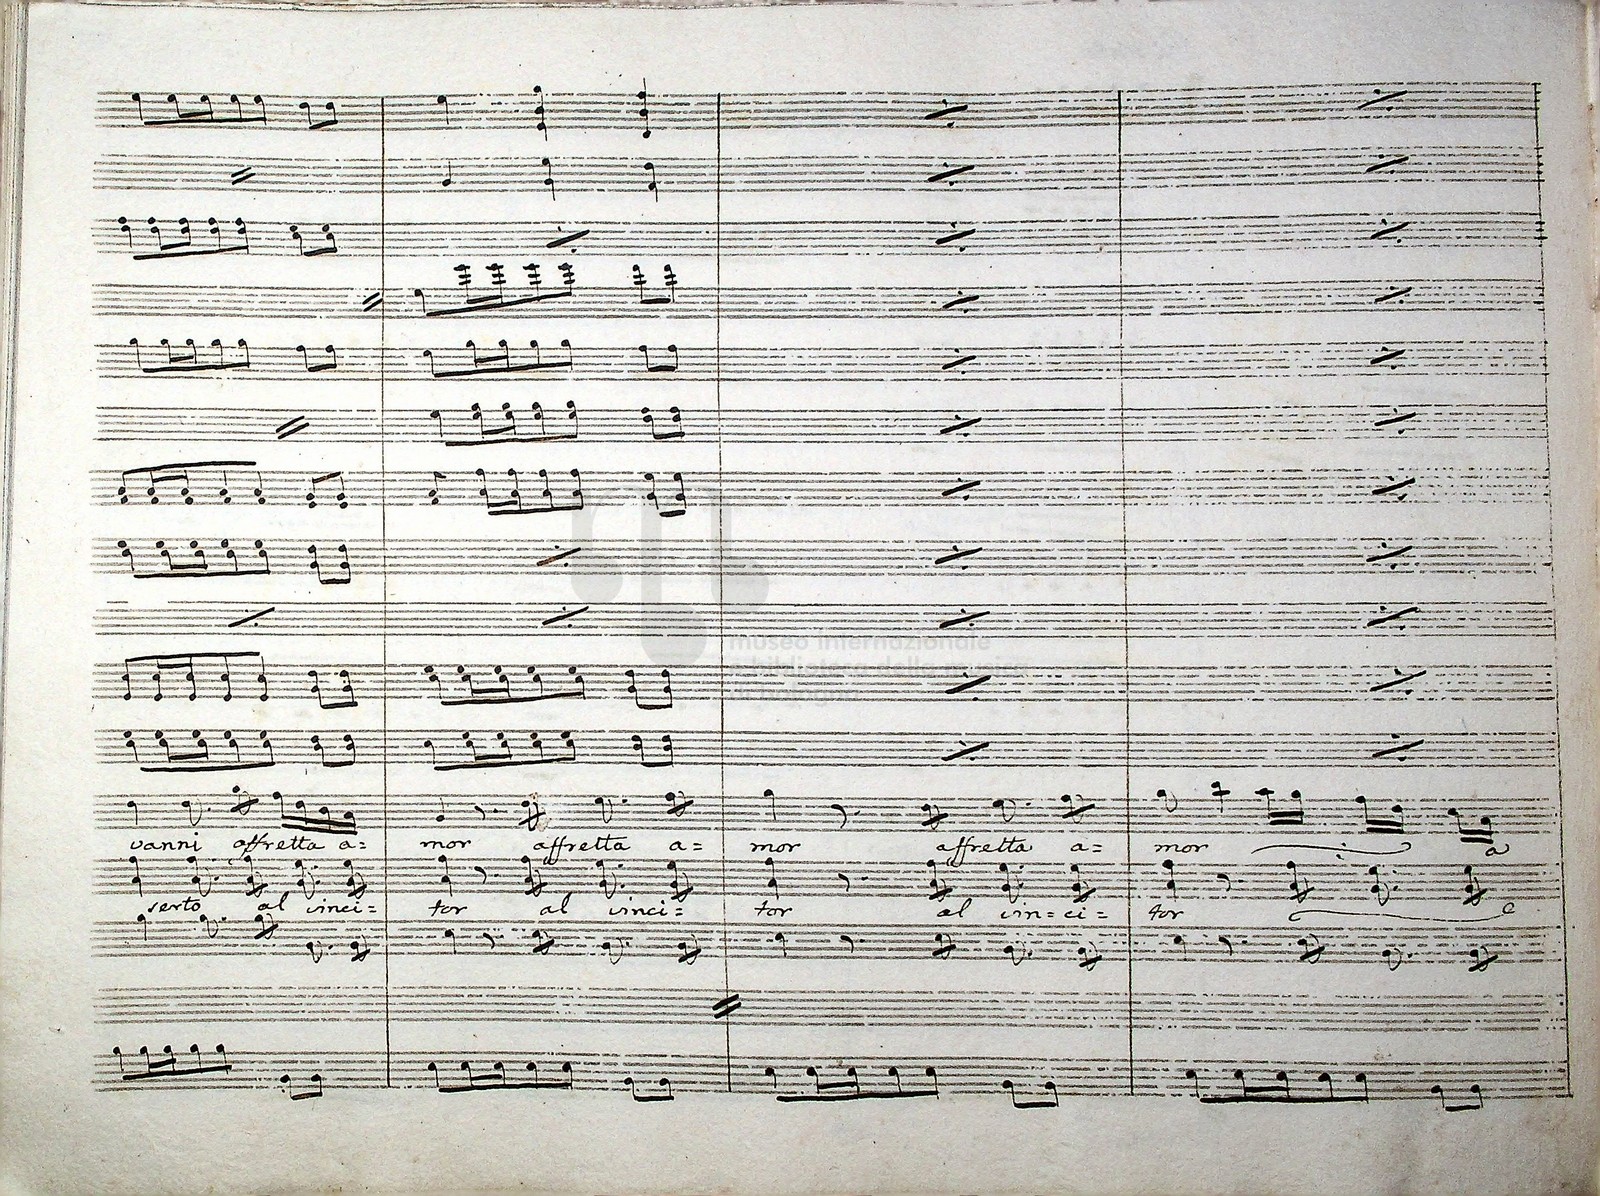 vanni affretta a= mor affretta a= mor affretta a= mor a
serto al vinci= tor al vinci= tor al vin=ci= tor e
museo internazionale
e biblioteca della musica
di bologna